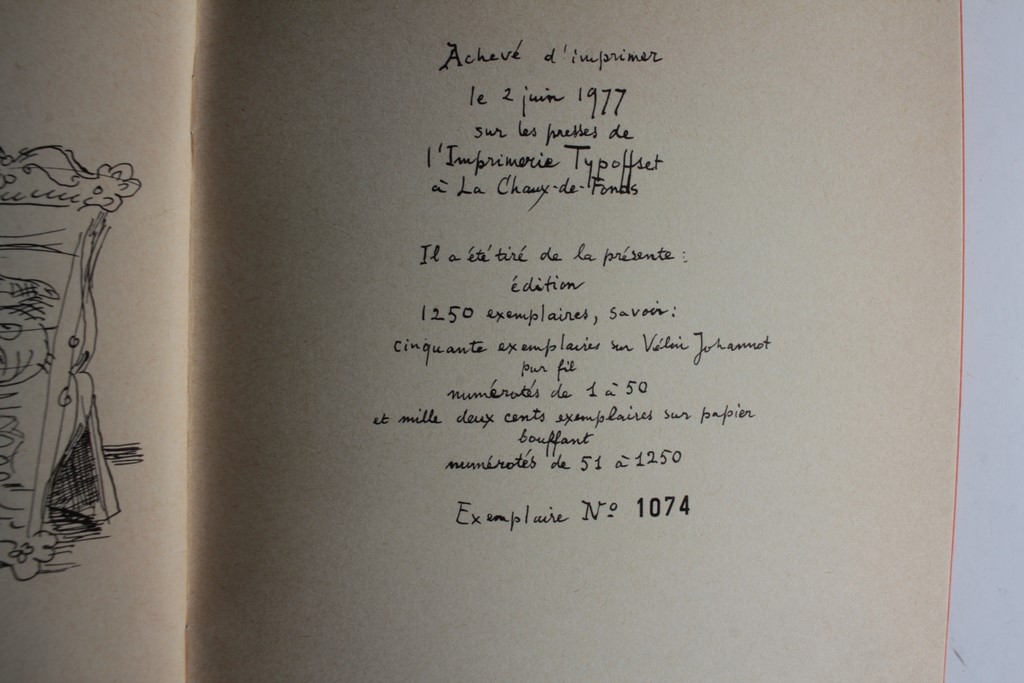 Achevé d'imprimer
le 2 juin 1977
sur les presses de
l'Imprimerie Typoffset
à La Chaux-de-Fonds
Il a été tiré de la présente :
édition
1250 exemplaires, savoir :
cinquante exemplaires sur Vélin Johannot
pur fil
numérotés de 1 à 50
et mille deux cents exemplaires sur papier
bouffant
numérotés de 51 à 1250
Exemplaire Nº 1074